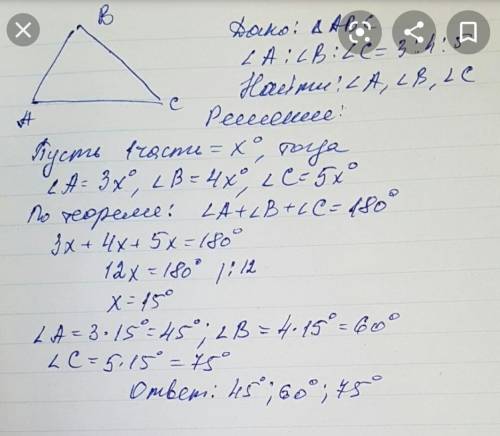 B
A
C
Дано: △ABC
∠A:∠B:∠C=3:4:5
Найти: ∠A, ∠B, ∠C
Решение:
Пусть 1 часть = x°, тогда
∠A=3x°, ∠B=4x°, ∠C=5x°
По теореме: ∠A+∠B+∠C=180°
3x+4x+5x=180°
12x=180° |:12
x=15°
∠A=3·15°=45°; ∠B=4·15°=60°
∠C=5·15°=75°
Ответ: 45°; 60°; 75°